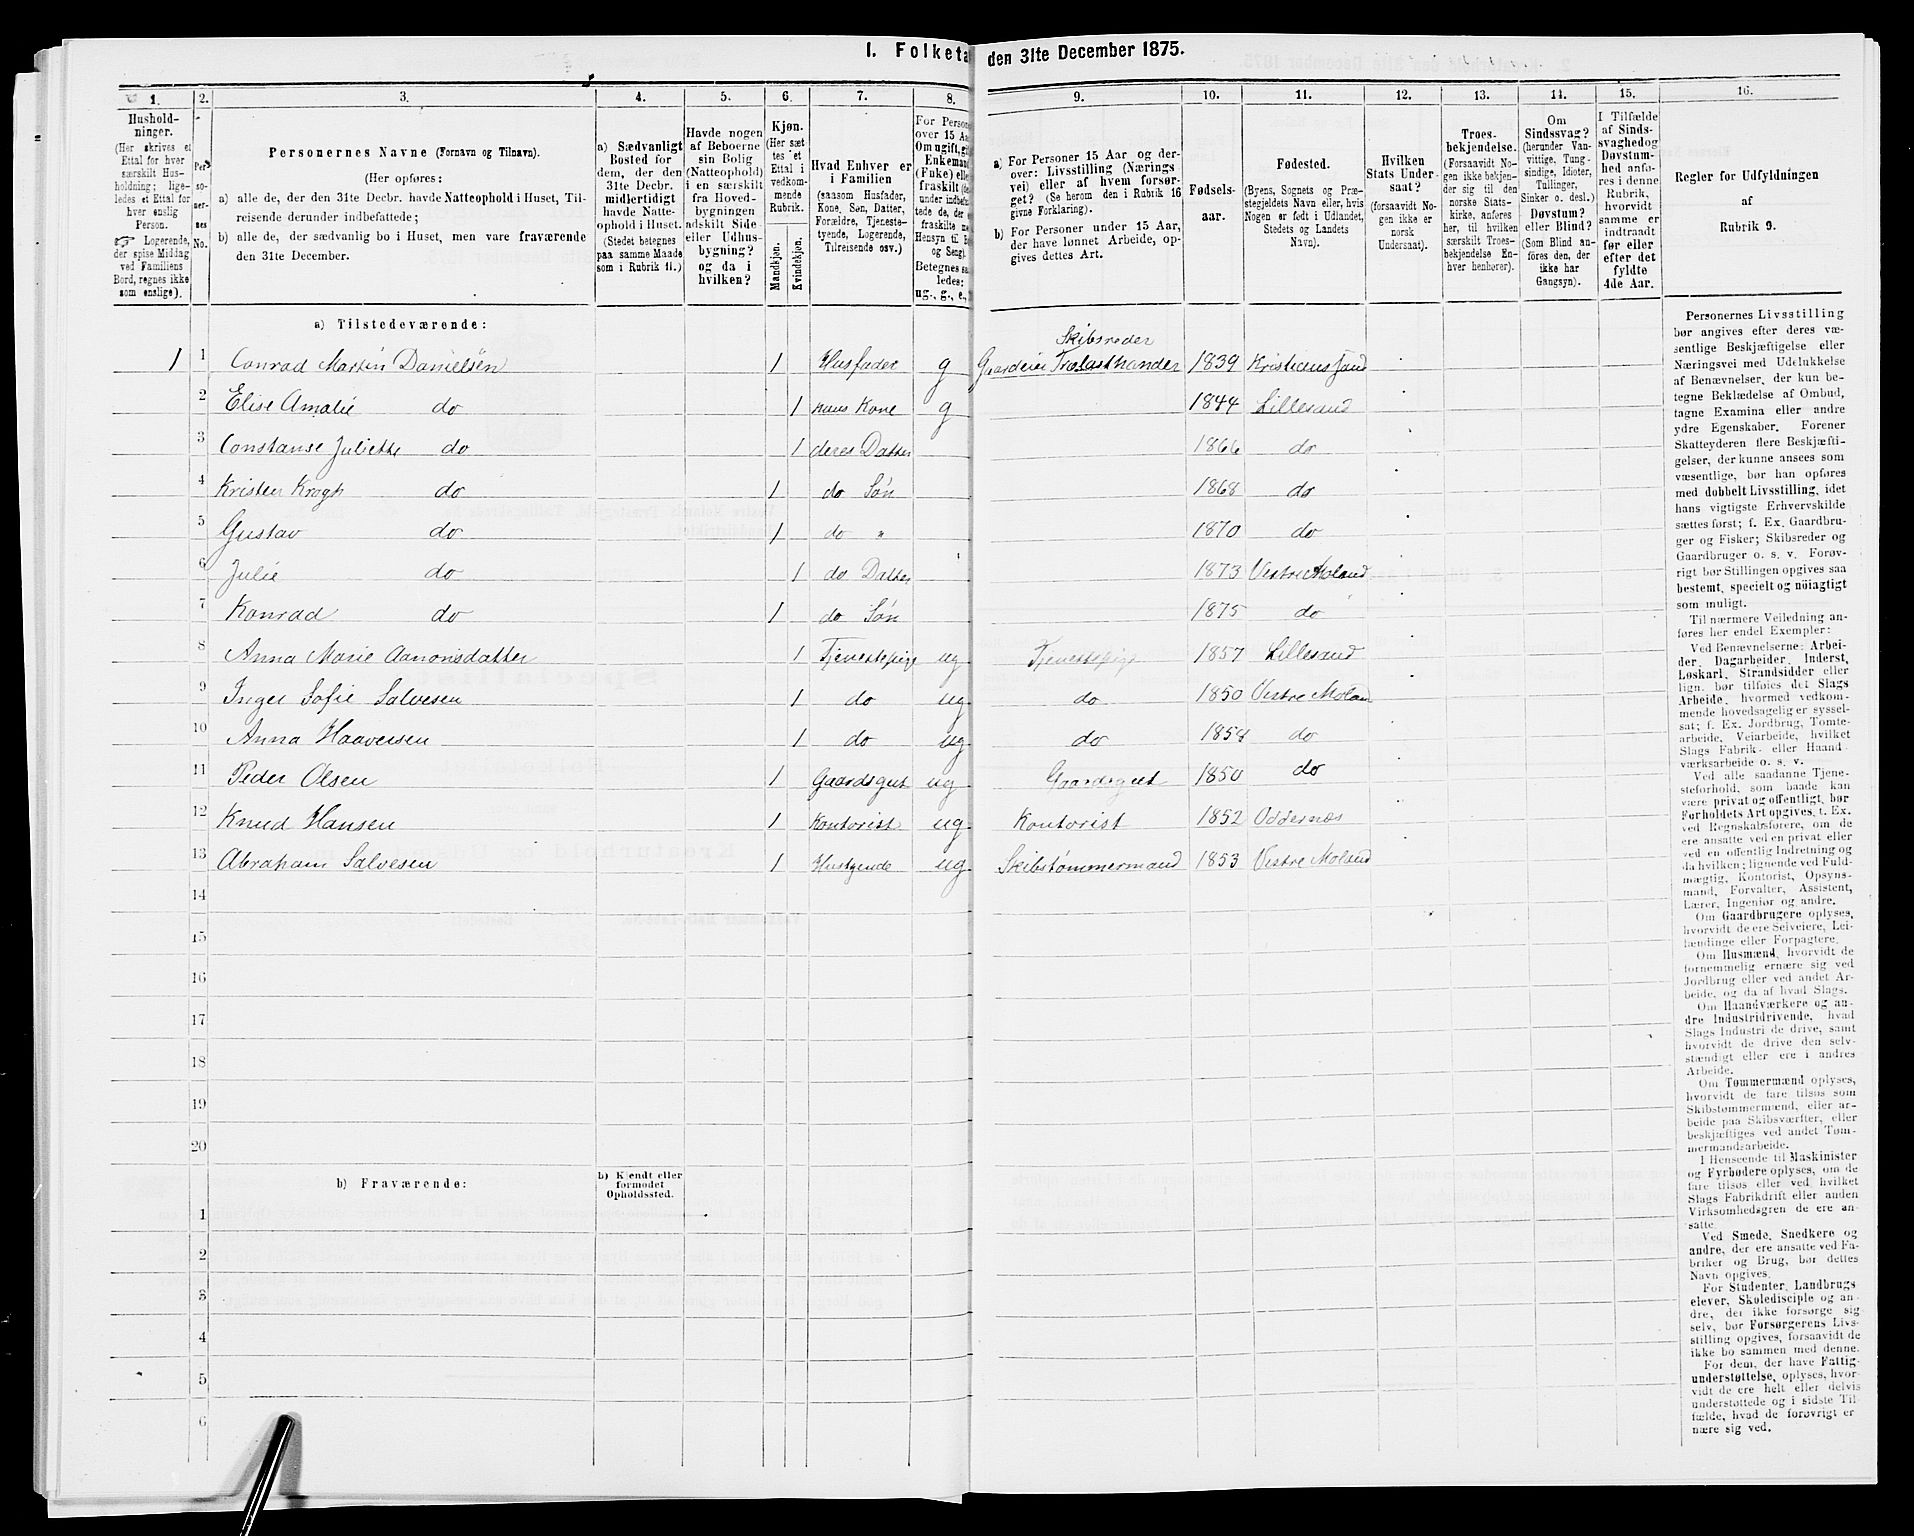 I. Folketæ den 31te December 1875.
1. 2. 3. 4. 5. 6. 7. 8. 9. 10. 11. 12. 13. 14. 15. 16.
Hushold-
ninger.
(Her skrives et
Ettal for hver
særskilt Hus-
holdning; lige-
ledes et Ettal for
hver enslig
Person.
☞ Logerende,
der spise Middag
ved Familiens
Bord, regnes ikke
som enslige).
Per-
so-
ner-
nes
No.
Personernes Navne (Fornavn og Tilnavn).
(Her opføres:
a) alle de, der den 31te Decbr. havde Natteophold i Huset, Til-
reisende derunder indbefattede;
b) alle de, der sædvanlig bo i Huset, men vare fraværende
den 31te December.
a) Sædvanligt
Bosted for
dem, der den
31te Decbr.
midlertidigt
havde Natte-
ophold i Huset.
(Stedet betegnes
paa samme Maade
som i Rubrik 11.)
Havde nogen
af Beboerne
sin Bolig
(Natteophold)
i en særskilt
fra Hoved-
bygningen
adskilt Side-
eller Udhus-
bygning?
og da i
hvilken?
Kjøn.
(Her sæt-
tes et
Ettal i
vedkom-
mende
Rubrik.
Mandkjøn.
Kvindekjøn.
Hvad Enhver er
i Familien
(saasom Husfader,
Kone, Søn, Datter,
Forældre, Tjeneste-
tyende, Logerende,
Tilreisende osv.).
For Person
over 15 Aa
Om ugift, gi
Enkemand
(Fuke) elle
fraskilt (de
under indbefat-
tede de, der e
fraskilte me
Hensyn til B
og Seng).
Betegnes saa
ledes:
ug., g., e.,
a) For Personer 15 Aar og der-
over: Livsstilling (Nærings
vei) eller af hvem forsør-
get? (Se herom den i Rubrik 16
givne Forklaring).
b) For Personer under 15 Aar,
der have lønnet Arbeide, op-
gives dettes Art.
Fødsels-
aar.
Fødested.
(Byens, Sognets og Præ-
stegjeldets Navn eller, hvis
Nogen er født i Udlandet,
Stedets og Landets
Navn).
Hvilken
Stats Under-
saat?
(forsaavidt No-
gen ikke er
norsk
Undersaat).
Troes-
bekjendelse.
(Forsaavidt No-
gen ikke bekjen-
der sig til den
norske Stats-
kirke, anføres
her, til hvilken
særskilt Troes-
bekjendelse En-
hver henhører).
Om
Sindssvag?
(herunder Van-
vittige, Tung-
sindige, Idioter,
Tullinger,
Sinker o. desl.)
Døvstum?
eller Blind?
(Som Blind an-
føres den, der
ikke har
Gangsyn).
I Tilfælde
af Sinds-
svaghed og
Døvstum-
hed anfø-
res i denne
Rubrik,
hvorvidt
samme er
indtraadt
før eller
efter det
fyldte
4de Aar.
Regler for Udfyldningen
af
Rubrik 9.
a) Tilstedeværende:
Skibsreder
1 1 Conrad Martin Danielsen 1 Husfader g Gaardeier Trælasthandler 1839 Kristianssand
2 Elise Amalie do 1 hans Kone g 1844 Lillesand
3 Constanse Juliette do 1 deres Datter 1866 do
4 Kristen Krogh do 1 do Søn 1868 do
5 Gustav do 1 do " 1870 do
6 Julie do 1 do Datter 1873 Vestre Moland
7 Konrad do 1 do Søn 1875 do
8 Anna Marie Aanonsdatter 1 Tjenestepige ug Tjenestepige 1857 Lillesand
9 Inger Sofie Salvesen 1 do ug do 1850 Vestre Moland
10 Anna Haaversen 1 do ug do 1858 do
11 Peder Olsen 1 Gaardsgut ug Gaardsgut 1850 do
12 Knud Hansen 1 Kontorist ug Kontorist 1852 Oddernæs
13 Abraham Salvesen 1 Huslyende ug Skibstømmermand 1853 Vestre Moland
14
15
16
17
18
19
20
b) Fraværende:
b) Kjendt eller
formodet
Opholdssted.
1
2
3
4
5
6
Personernes Livsstilling
bør angives efter deres væ-
sentlige Beskjæftigelse eller
Næringsvei med Udelukkelse
af Benævnelser, der kun be-
tegne Beklædelse af Ombud,
tagne Examina eller andre
ydre Egenskaber. Forener
Skatteyderen flere Beskjæfti-
gelser, der kunne ansees som
væsentlige, bør han opføres
med dobbelt Livsstilling, idet
hans vigtigste Erhvervskilde
sættes først; f. Ex. Gaardbru-
ger og Fisker; Skibsreder og
Gaardbruger o. s. v. Forøv-
rigt bør Stillingen opgives saa
bestemt, specielt og nöiagtigt
som muligt.
Til nærmere Veiledning an-
føres her endel Exempler:
Ved Benævnelserne: Arbei-
der, Dagarbeider, Inderst,
Løskarl, Strandsidder eller
lign. bør tilføies det Slags
Arbeide, hvormed vedkom-
mende hovedsagelig er syssel-
sat; f. Ex. Jordbrug, Tomte-
arbeide, Veiarbeide, hvilket
Slags Fabrik- eller Haand-
værksarbeide o. s. v.
Ved alle saadanne Tjene-
steforhold, som baade kan
være privat og offentligt, bør
Forholdets Art opgives, t. Ex.
ved Regnskabsførere, om de
ere ansatte ved en privat eller
ved en offentlig Indretning og
da hvilken; lignende ved Fuld-
mægtig, Kontorist, Opsyns-
mand, Forvalter, Assistent,
Lærer, Ingeniør og andre.
Om Gaardbrugere oplyses,
hvorvidt de ere Selveiere, Lei-
lændinge eller Forpagtere.
Om Husmænd, hvorvidt de
fornemmelig ernære sig ved
Jordbrug eller ved andet Ar-
beide, og da af hvad Slags.
Om Haandværkere og an-
dre Industridrivende, hvad
Slags Industri de drive, samt
hvorvidt de drive den selv-
stændigt eller ere i andres
Arbeide.
Om Tømmermænd oplyses,
hvorvidt de fare tilsøs som
Skibstømmermænd, eller ar-
beide paa Skibsværfter, eller
beskjæftiges ved andet Tøm-
mermandsarbeide.
I Henseende til Maskinister
og Fyrbødere oplyses, om de
fare tilsøs eller ved hvilket
Slags Fabrikdrift eller anden
Virksomhedsgren de ere an-
satte.
Ved Smede, Snedkere og
andre, der ere ansatte ved Fa-
briker og Brug, bør dettes
Navn opgives.
For Studenter, Landbrugs-
elever, Skoledisciple og an-
dre, der ikke forsørge sig
selv, bør Forsørgerens Livs-
stilling opgives, forsaavidt de
ikke bo sammen med denne.
For dem, der have Fattig-
understøttelse, oplyses, hvor-
vidt de ere helt eller delvis
understøttede og i sidste Til-
fælde, hvad de forøvrigt er
nære sig ved.